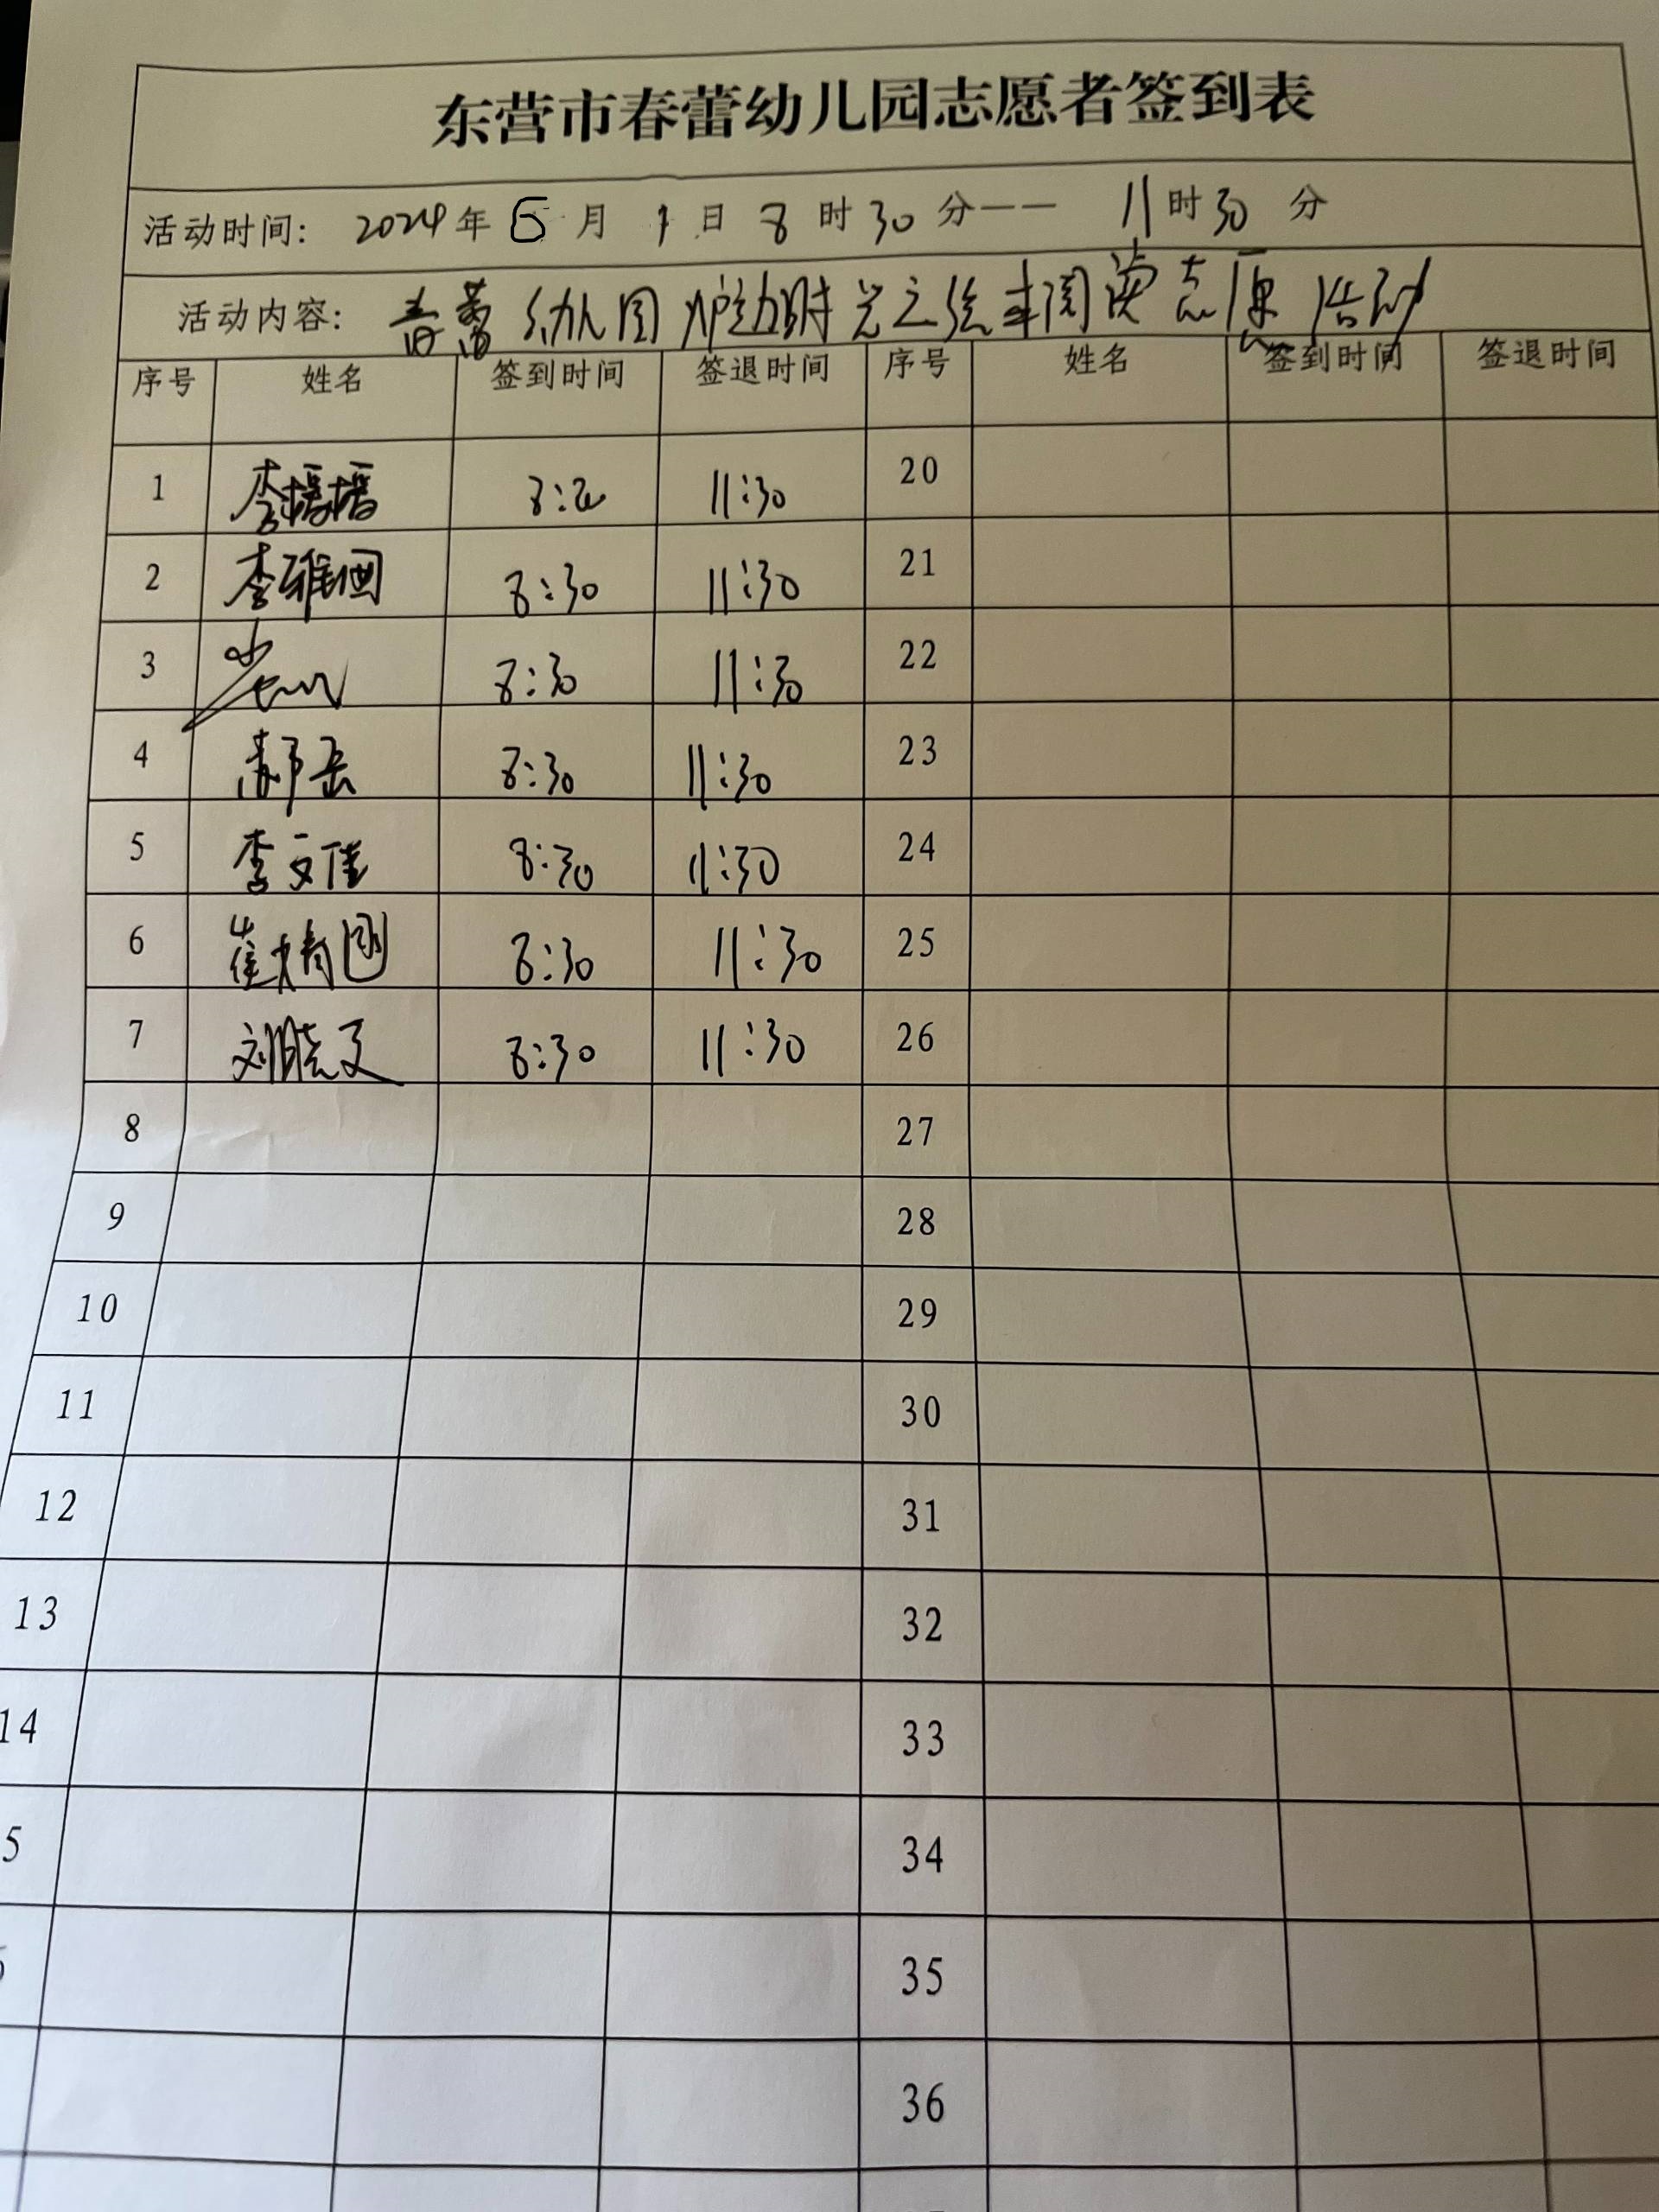 东营市春蕾幼儿园志愿者签到表
活动时间: 2024年 6 月 1 日 8 时 30 分—— 11 时 30 分
活动内容: 春蕾幼儿园 炉边时光之绘本阅读志愿活动
序号 姓名 签到时间 签退时间 序号 姓名 签到时间 签退时间
1 李 11:30 20
2 李雅 8:30 11:30 21
3 8:30 11:30 22
4 郝岳 8:30 11:30 23
5 李文佳 8:30 11:30 24
6 崔 8:30 11:30 25
7 刘晓文 8:30 11:30 26
8 27
9 28
10 29
11 30
12 31
13 32
14 33
5 34
35
36